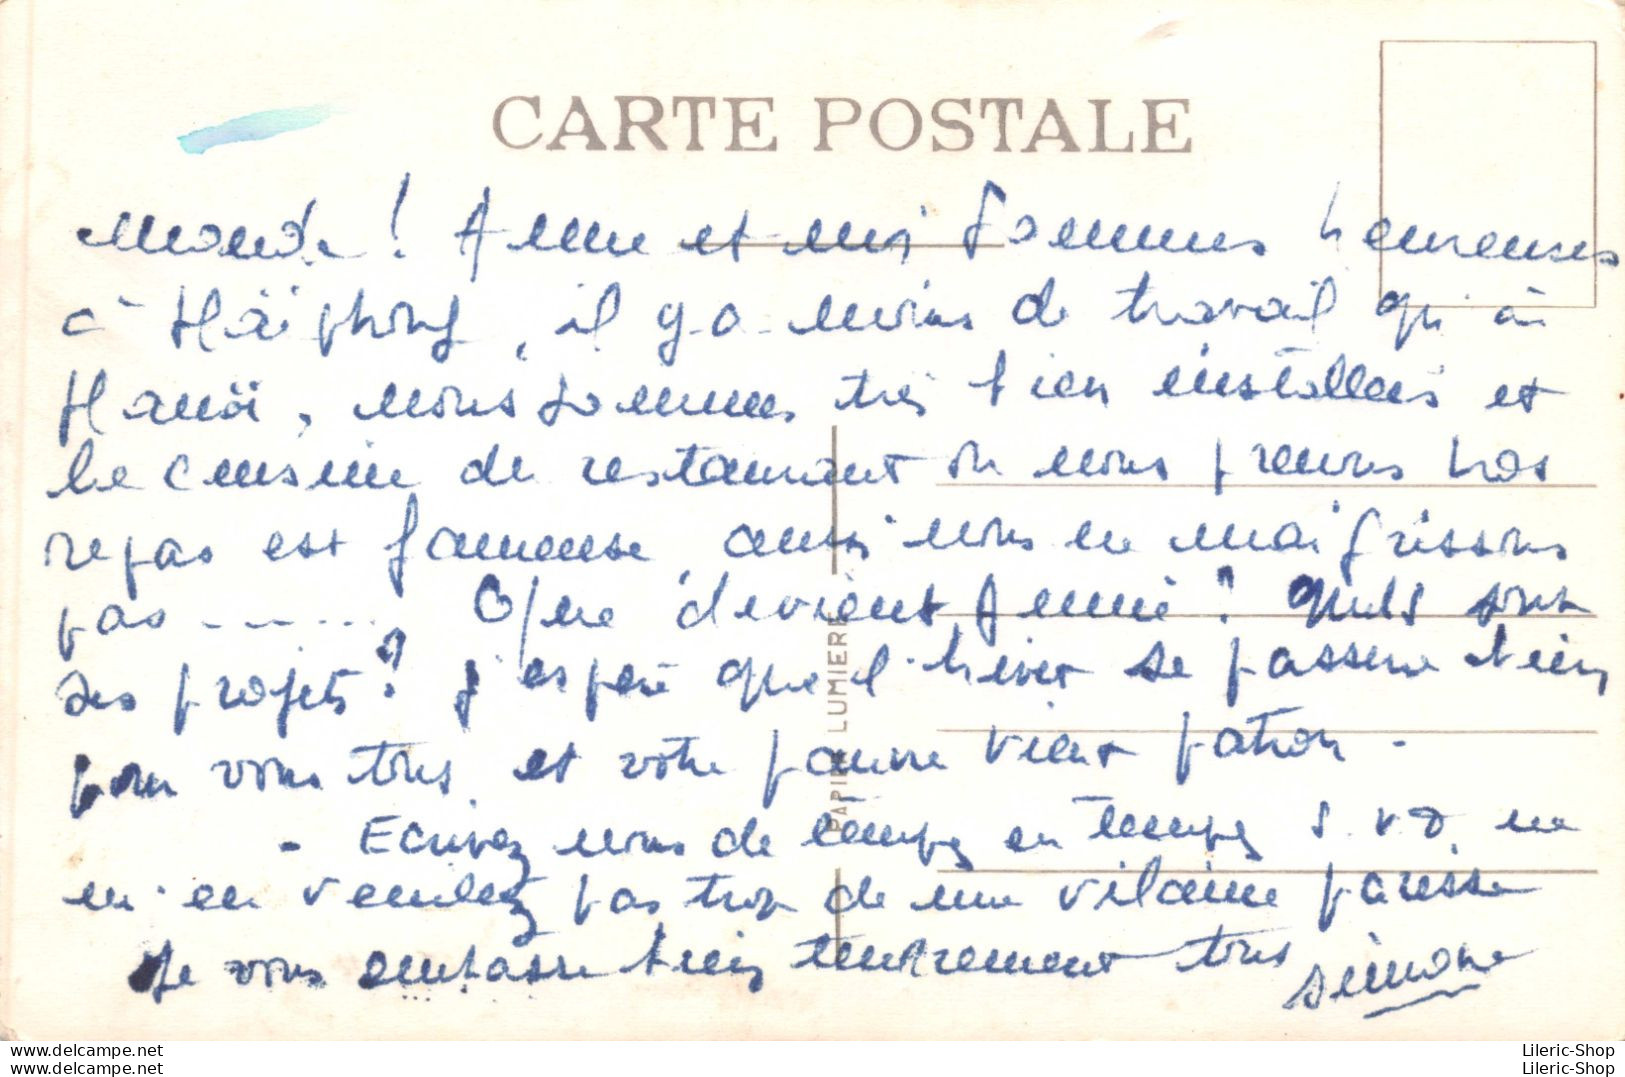 CARTE POSTALE
monde ! Anne et moi sommes heureuses
à Haïphong, il y a moins de travail qu'à
Hanoï, nous sommes très bien installées et
la cuisine de restaurant où nous prenons nos
repas est fameuse, aussi nous ne maigrissons
pas ....... Que devient Annie ? Quels sont
ses projets ? J'espère que l'hiver se passera bien
pour vous tous et votre pauvre vieux patron -
- Ecrivez nous de temps en temps S.V.P ne
m'en voulez pas trop de ma vilaine paresse
Je vous embrasse bien tendrement tous
Simone
PAPIER LUMIERE
delcampe.net
Lileric-Shop
delcampe.net
Lileric-Shop